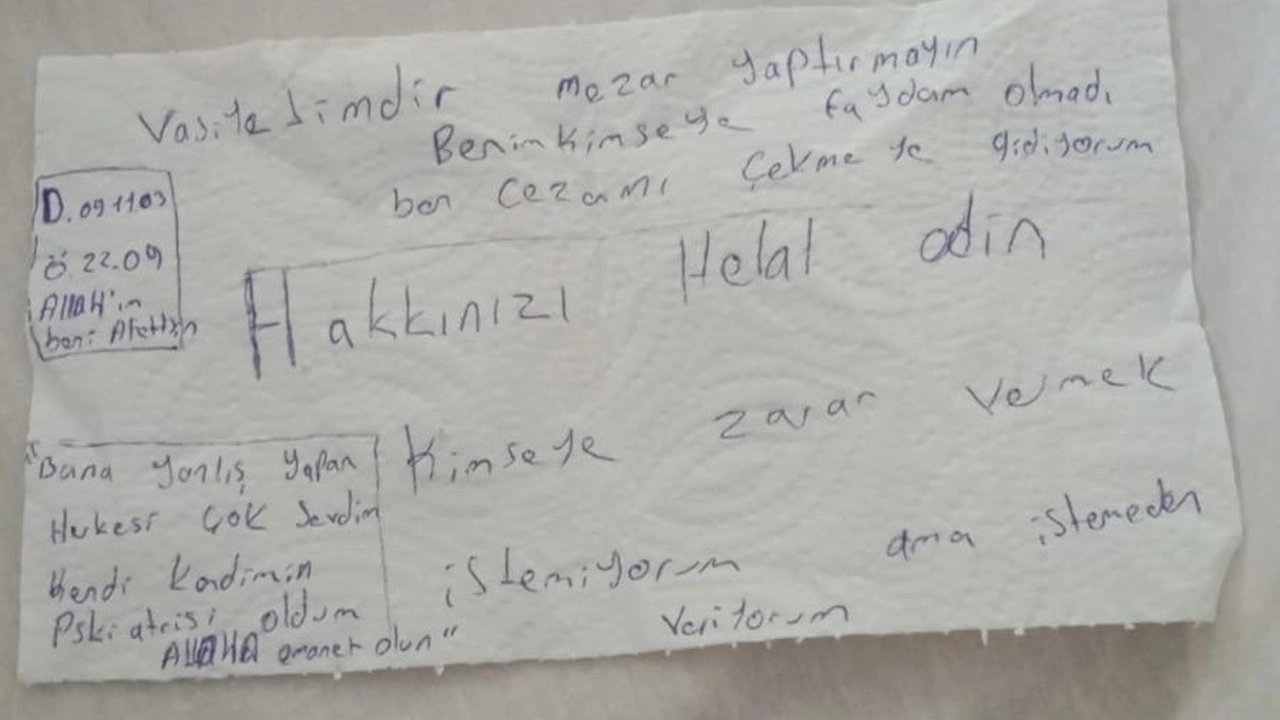 Vasiyetimdir mezar yaptırmayın
Benim kimseye faydam olmadı
ben cezamı çekmeye gidiyorum
D. 09.11.03
Ö 22.09
ALLAH'ın
beni Afettsin
Hakkınızı Helal edin
Kimseye zarar vermek
istemiyorum ama istemeden
veriyorum
"Bana yanlış yapan
Herkesi çok sevdim
Kendi Kendimin
Pskiatrisi oldum
ALLAHA emanet olun"